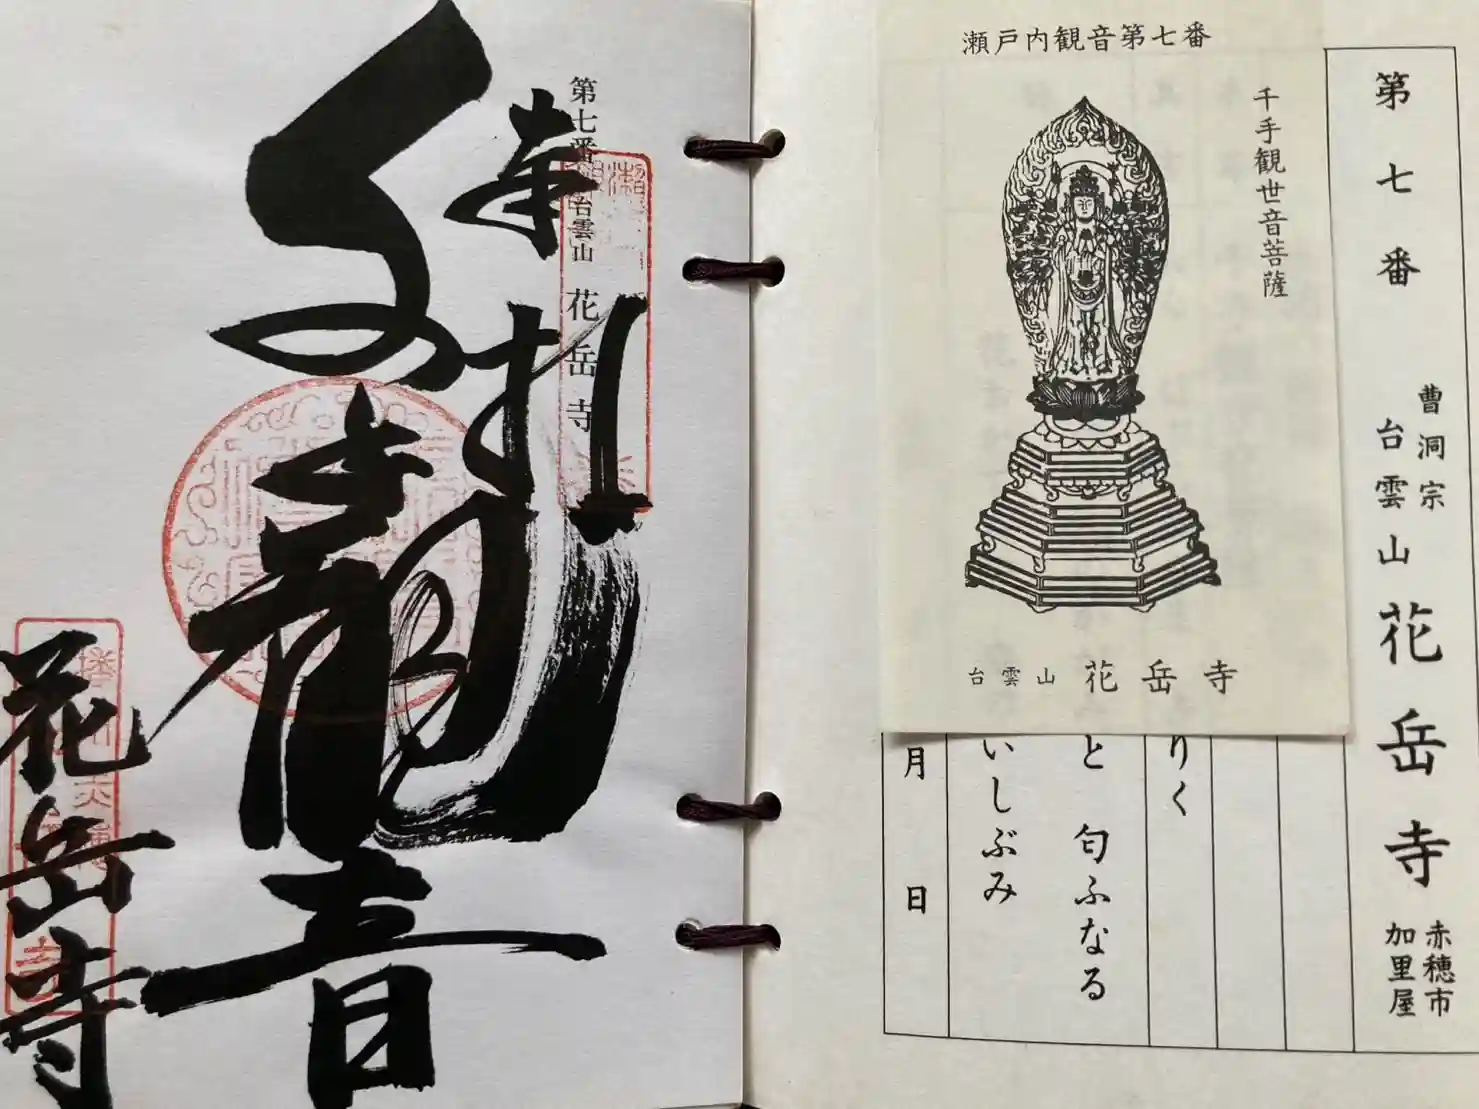 第七番
曹洞宗
台雲山
花岳寺
赤穂市
加里屋
瀬戸内観音第七番
千手観世音菩薩
台雲山 花岳寺
りく
と 匂ふなる
いしぶみ
月 日
第七番 台雲山 花岳寺
奉拝
音
花岳寺